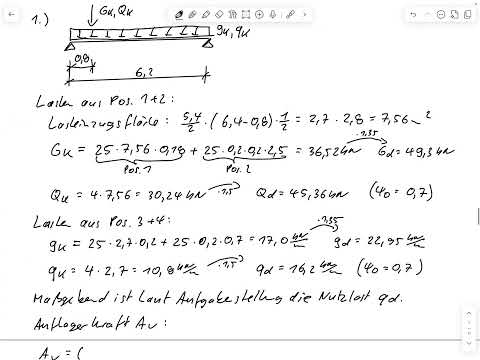 1.)
Gk, Qk
gk, qk
0,8
6,2
Lasten aus Pos. 1+2:
Lasteinzugsfläche: 5,4/2 · (6,4-0,8) · 1/2 = 2,7 · 2,8 = 7,56 m²
Gk = 25 · 7,56 · 0,18 + 25 · 0,2 · 0,2 · 2,5 = 36,52 kN ·1,35 Gd = 49,3 kN
Pos. 1 Pos. 2
Qk = 4 · 7,56 = 30,24 kN ·1,5 Qd = 45,36 kN (ψ0 = 0,7)
Lasten aus Pos. 3+4:
gk = 25 · 2,7 · 0,2 + 25 · 0,2 · 0,7 = 17,0 kN/m ·1,35 gd = 22,95 kN/m
qk = 4 · 2,7 = 10,8 kN/m ·1,5 qd = 16,2 kN/m (ψ0 = 0,7)
Maßgebend ist laut Aufgabestellung die Nutzlast qd.
Auflagerkraft Av:
Av = (